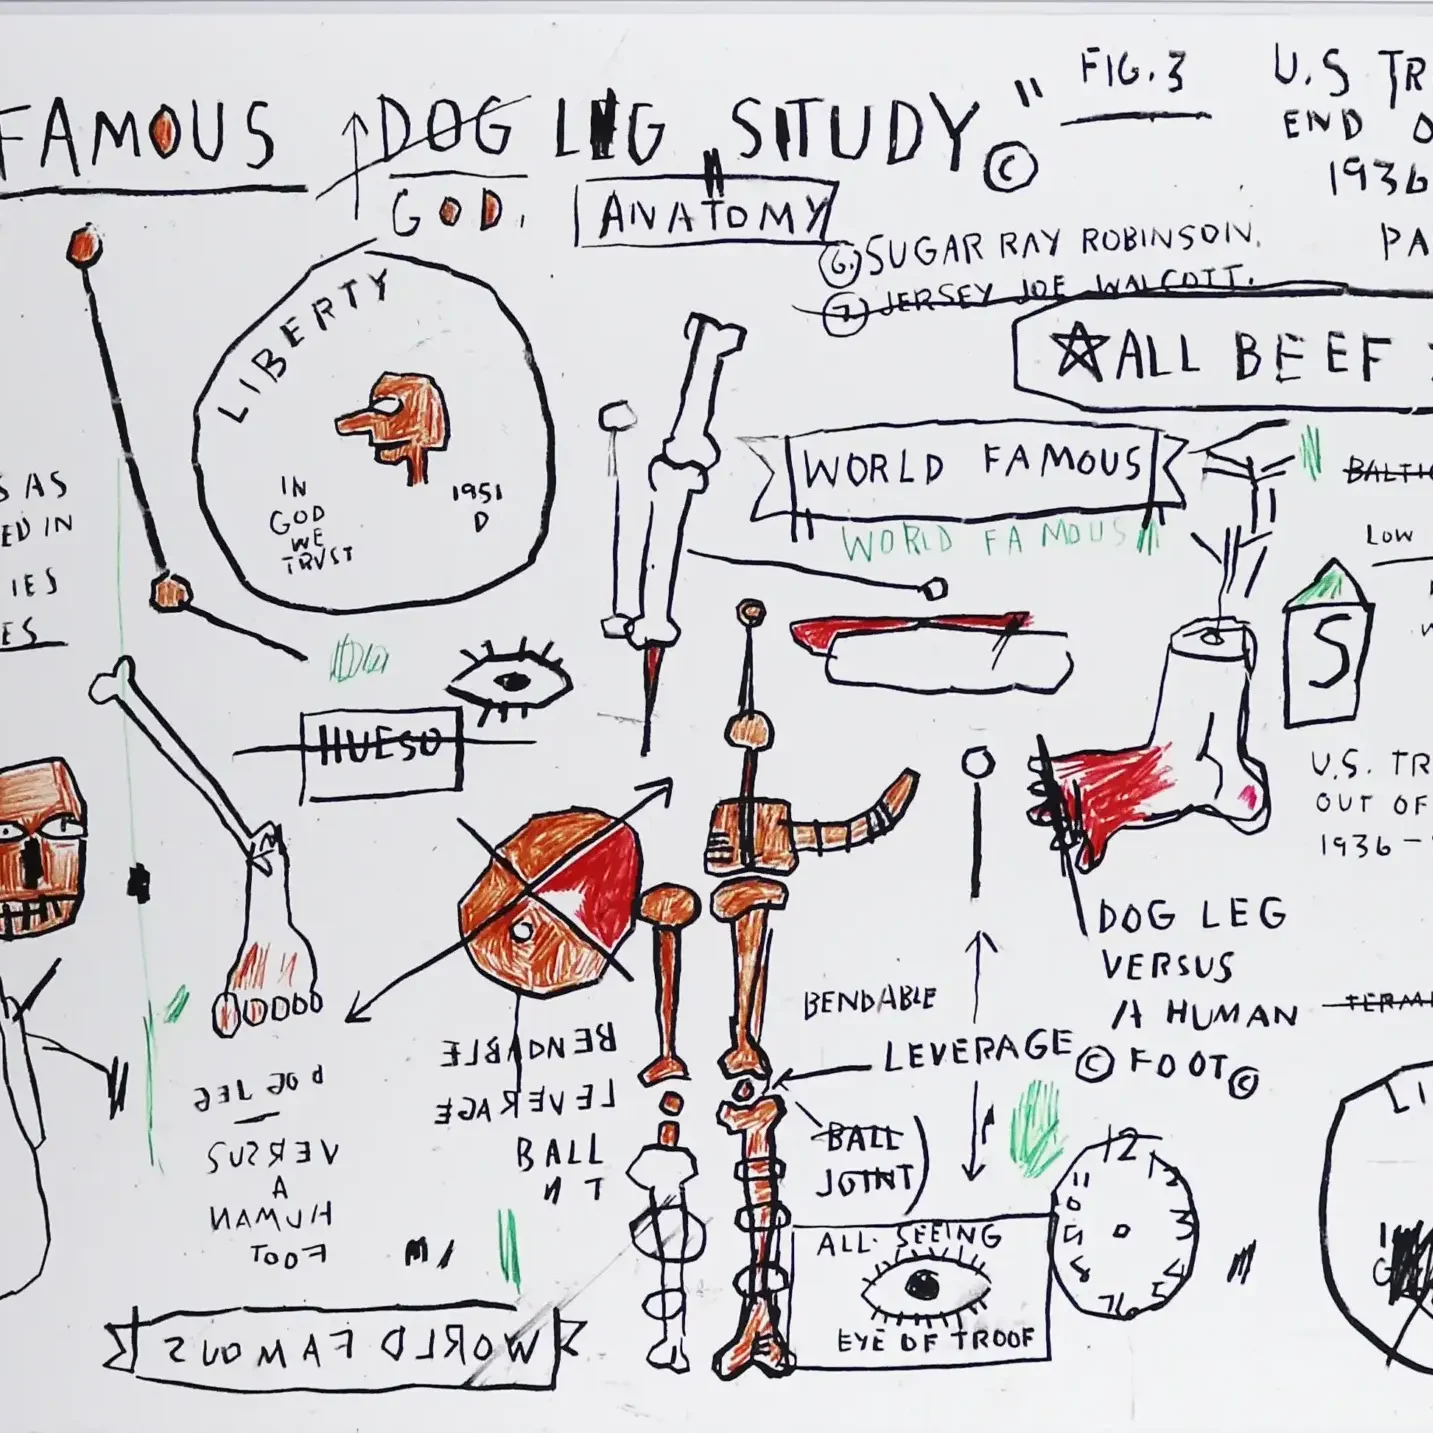 FAMOUS DOG LEG STUDY" ©
GOD.
ANATOMY
FIG. 3
U.S TR
END O
1936
PA
6. SUGAR RAY ROBINSON.
7. JERSEY JOE WALCOTT.
☆ALL BEEF
LIBERTY
IN
GOD
WE
TRVST
1951
D
WORLD FAMOUS
WORLD FAMOUS
BALTI
LOW
S AS
ED IN
IES
ES
S
HUESO
U.S. TR
OUT OF
1936-
DOG LEG
VERSUS
A HUMAN
FOOT ©
BENDABLE
LEVERAGE ©
TERMI
BALL
JOINT)
BENDABLE
LEVERAGE
BALL
N T
DOG LEG
VERSUS
A
HUMAN
FOOT
12
11
3
ALL. SEEING
EYE OF TROOF
WORLD FAMOUS
LI